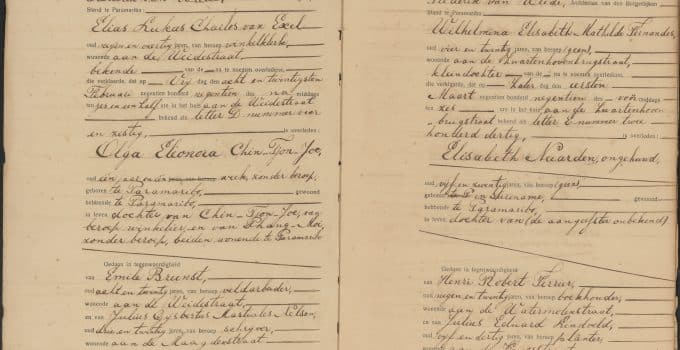 Stand te Paramaribo:
Elias Lukas Charles van Exel
oud negen en veertig jaren, van beroep winkelklerk,
wonende aan de Weidestraat
bekende van de na te noemen overledene,
die verklaarde, dat op Vrij dag den acht en twintigsten
Februari negentien honderd negentien des na middags
ten zes en half ure in het huis aan de Weidestraat
bekend als letter D nummer vier
en zestig, is overleden:
Olga Elionora Chin-Tjon-Joe,
oud een jaar en week, zonder beroep,
geboren te Paramaribo, gewoond
hebbende te Paramaribo,
in leven dochter van Chin-Tjon-Joe, van
beroep winkelier, en van Phang-Moe,
zonder beroep, beiden wonende te Paramaribo
Gedaan in tegenwoordigheid
van Emile Brunst,
oud acht en twintig jaren, van beroep veldarbeider,
wonende aan de Weidestraat,
en van Julius Gysbertus Martinales Nelson,
oud drie en twintig jaren, van beroep schrijver,
wonende aan de Maagdenstraat
van Weide, Ambtenaar van den Burgerlijken
Stand te Paramaribo:
Wilhelmina Elisabeth Mathilde Fernandes,
oud vier en twintig jaren, van beroep (geen),
wonende aan de Zwartenhovenbrugstraat,
kleindochter van de na te noemen overledene,
die verklaarde, dat op Zater dag den eersten
Maart negentien honderd negentien des voor middags
ten zes ure in het huis aan de Zwartenhoven
brugstraat bekend als letter E nummer twee
honderd dertig, is overleden:
Elisabeth Naarden, ongehuwd,
oud vijf en zeventig jaren, van beroep (geen),
geboren in Suriname, gewoond
hebbende te Paramaribo,
in leven dochter van (de aangeefster onbekend)
Gedaan in tegenwoordigheid
van Henri Robert Ferrier,
oud negen en twintig jaren, van beroep boekhouder,
wonende aan de Watermolenstraat,
en van Julius Eduard
oud vijf en dertig jaren, van beroep planter,
wonende aan de